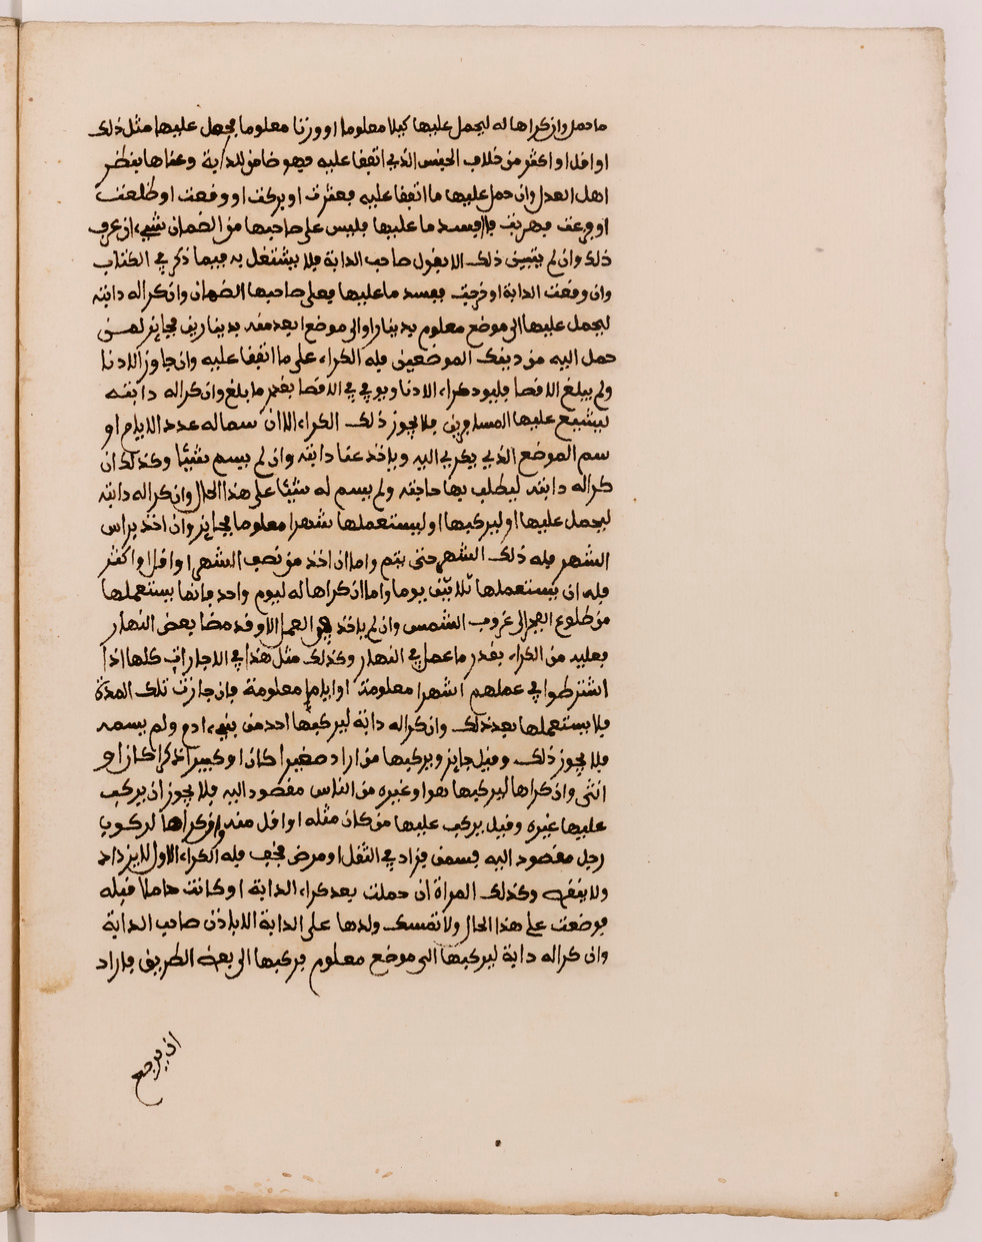 ما حمل وان كراها له ليحمل عليها كيلا معلوما او وزنا معلوما فحمل عليها مثل ذلك
او اقل او اكثر من خلاف الجنس الذي اتفقا عليه فهو ضامن للدابة وعناها بنظر
اهل العدل وان حمل عليها ما اتفقا عليه فعثرت او بركت او وقعت او طلعت
او فزعت فهربت فانفسد ما عليها فليس على صاحبها من الضمان شيء ان عرف
ذلك وان لم يتبين ذلك الا بقول صاحب الدابة فلا يشتغل به فيما ذكر في الكتاب
وان وقعت الدابة او خرجت ففسد ما عليها فعلى صاحبها الضمان وان كرا له دابته
ليحمل عليها الى موضع معلوم بدينار او الى موضع ابعد منه بدينارين فجايز لمن
حمل اليه من ذينك الموضعين فله الكراء على ما اتفقا عليه وان جاوز الادنا
ولم يبلغ الاقصا فليود كراء الادنا ويوفي في الاقصا بقدر ما بلغ وان كرا له دابته
ليشيع عليها المسافرين فلا يجوز ذلك الكراء الا ان سما له عدد الايام او
سم الموضع الذي يكري اليه وياخذ عنا دابته وان لم يسم شيئا وكذلك ان
كرا له دابته ليطلب بها حاجته ولم يسم له شيئا على هذا الحال وان كرا له دابته
ليحمل عليها او ليركبها او ليستعملها شهرا معلوما فجايز وان اخذ براس
الشهر فله ذلك الشهر حتى يتم واما ان اخذ من نصف الشهر او اقل او اكثر
فله ان يستعملها ثلاثين يوما واما ان كراها له ليوم واحد فانما يستعملها
من طلوع الفجر الى غروب الشمس وان لم ياخذ في العمل الا وقد مضا بعض النهار
فعليه من الكراء بقدر ما عمل في النهار وكذلك مثل هذا في الاجارات كلها اذا
اشترطوا في عملهم اشهرا معلومة او اياما معلومة فان جازت تلك المدة
فلا يستعملها بعد ذلك وان كرا له دابة ليركبها احد من بني ادم ولم يسمه
فلا يجوز ذلك وقيل جايز ويركبها من اراد صغيرا كان او كبيرا ذكرا كان او
انثى وان كراها ليركبها هو او غيره من الناس مقصود اليه فلا يجوز ان يركب
عليها غيره وقيل يركب عليها من كان مثله او اقل منه وان كراها لركوب
رجل مقصود اليه فسمن فزاد في الثقل او مرض فخف فله الكراء الاول لا يزداد
ولا ينقص وكذلك المراة ان حملت بعد كراء الدابة او كانت حاملا قبله
فوضعت على هذا الحال ولا تمسك ولدها على الدابة الا باذن صاحب الدابة
وان كرا له دابة ليركبها الى موضع معلوم فركبها الى بعض الطريق فاراد
ان يرجع